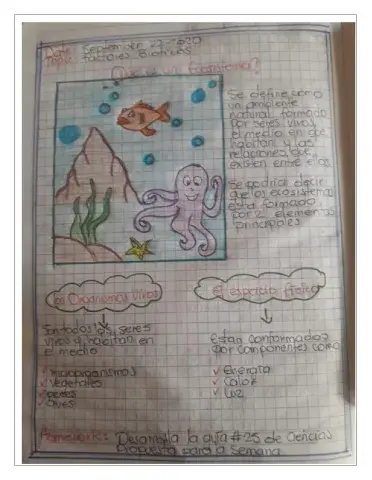 Date: September 27-2020
Topic: Factores Bioticos
¿Que es un Ecosistema?
Se define como
un ambiente
natural formado
por seres vivos,
el medio en que
habitan y las
relaciones que
existen entre ellos
Se podria decir
que los ecosistemas
esta formado
por 2 elementos
principales
Los Organismos vivos
El espacio fisico
En todos los seres
vivos q habitan en
el medio
✓ microorganismos
✓ Vegetales
✓ peces
✓ aves
Estan conformados
por componentes como
✓ Energia
✓ Calor
✓ Luz
Homework: Desarrolla la guia #25 de Ciencias
Propuesta para la Semana